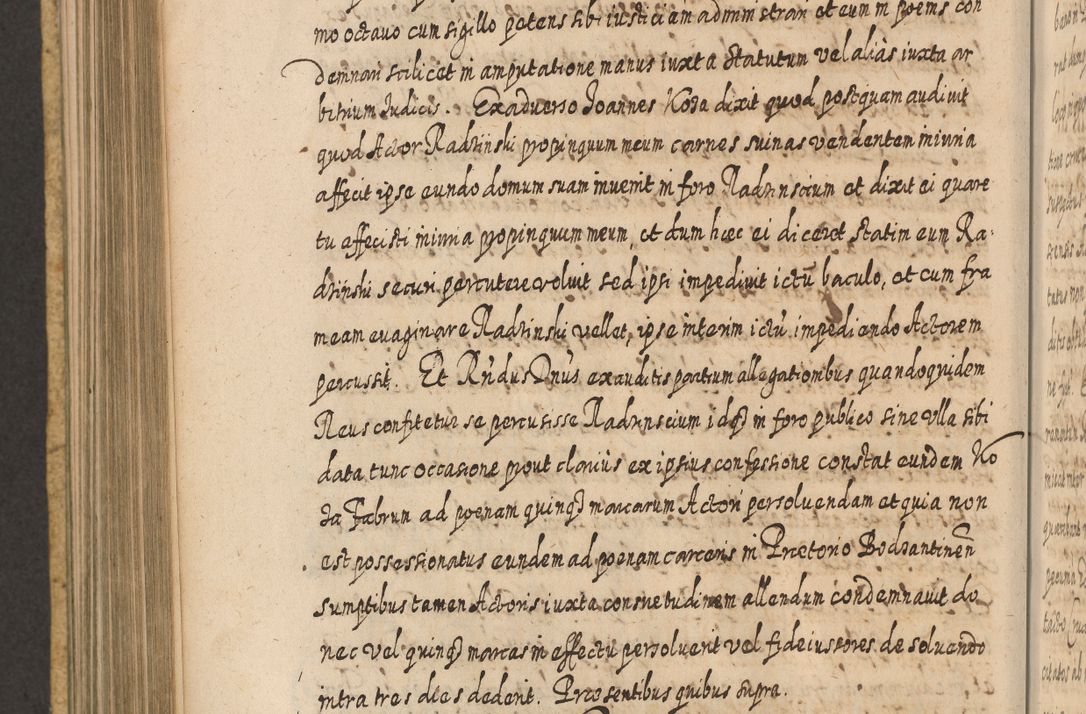 mo octauo cum sigillo petens sibi iusticiam administrari et eum in poenis con
demnari scilicet in amputatione manus iuxta Statutum vel alias iuxta ar
bitrium Iudicis. Exaduerso Joannes Koza dixit quod postquam audiuit
quod Actor Radzinski propinquum meum carnes suinas vendentem iniuria
affecit ipse eundo domum suam inuenit in foro Radzinscium et dixit ei quare
tu affecisti iniuria propinquum meum, et dum haec ei diceret statim eum Ra-
dzinski securi percutere voluit sed ipsi impediuit ictu baculo, et cum fra
meam euaginare Radzinski vellet, ipse interim ictū impediendo Actorem
percussit. Et Rñdus Dnūs exauditis partium allegationibus quandoquidem
Reus confitetur se percusisse Radzinscium idq3 in foro publico sine vlla sibi
data tunc occasione prout clarius ex ipsius confessione constat eundem Ko
za Fabrum ad poenam quinq3 marcarum Actori persoluendam et quia non
est possessionatus eundem ad poenam carceris in Praetorio Bodzantinen̄
sumptibus tamen Actoris iuxta consuetudinem allendum condemnauit do
nec vel quinq3 marcas in effectu persoluerit vel fideiussores de soluendo
intra tres dies dederit. Praesentibus quibus supra.